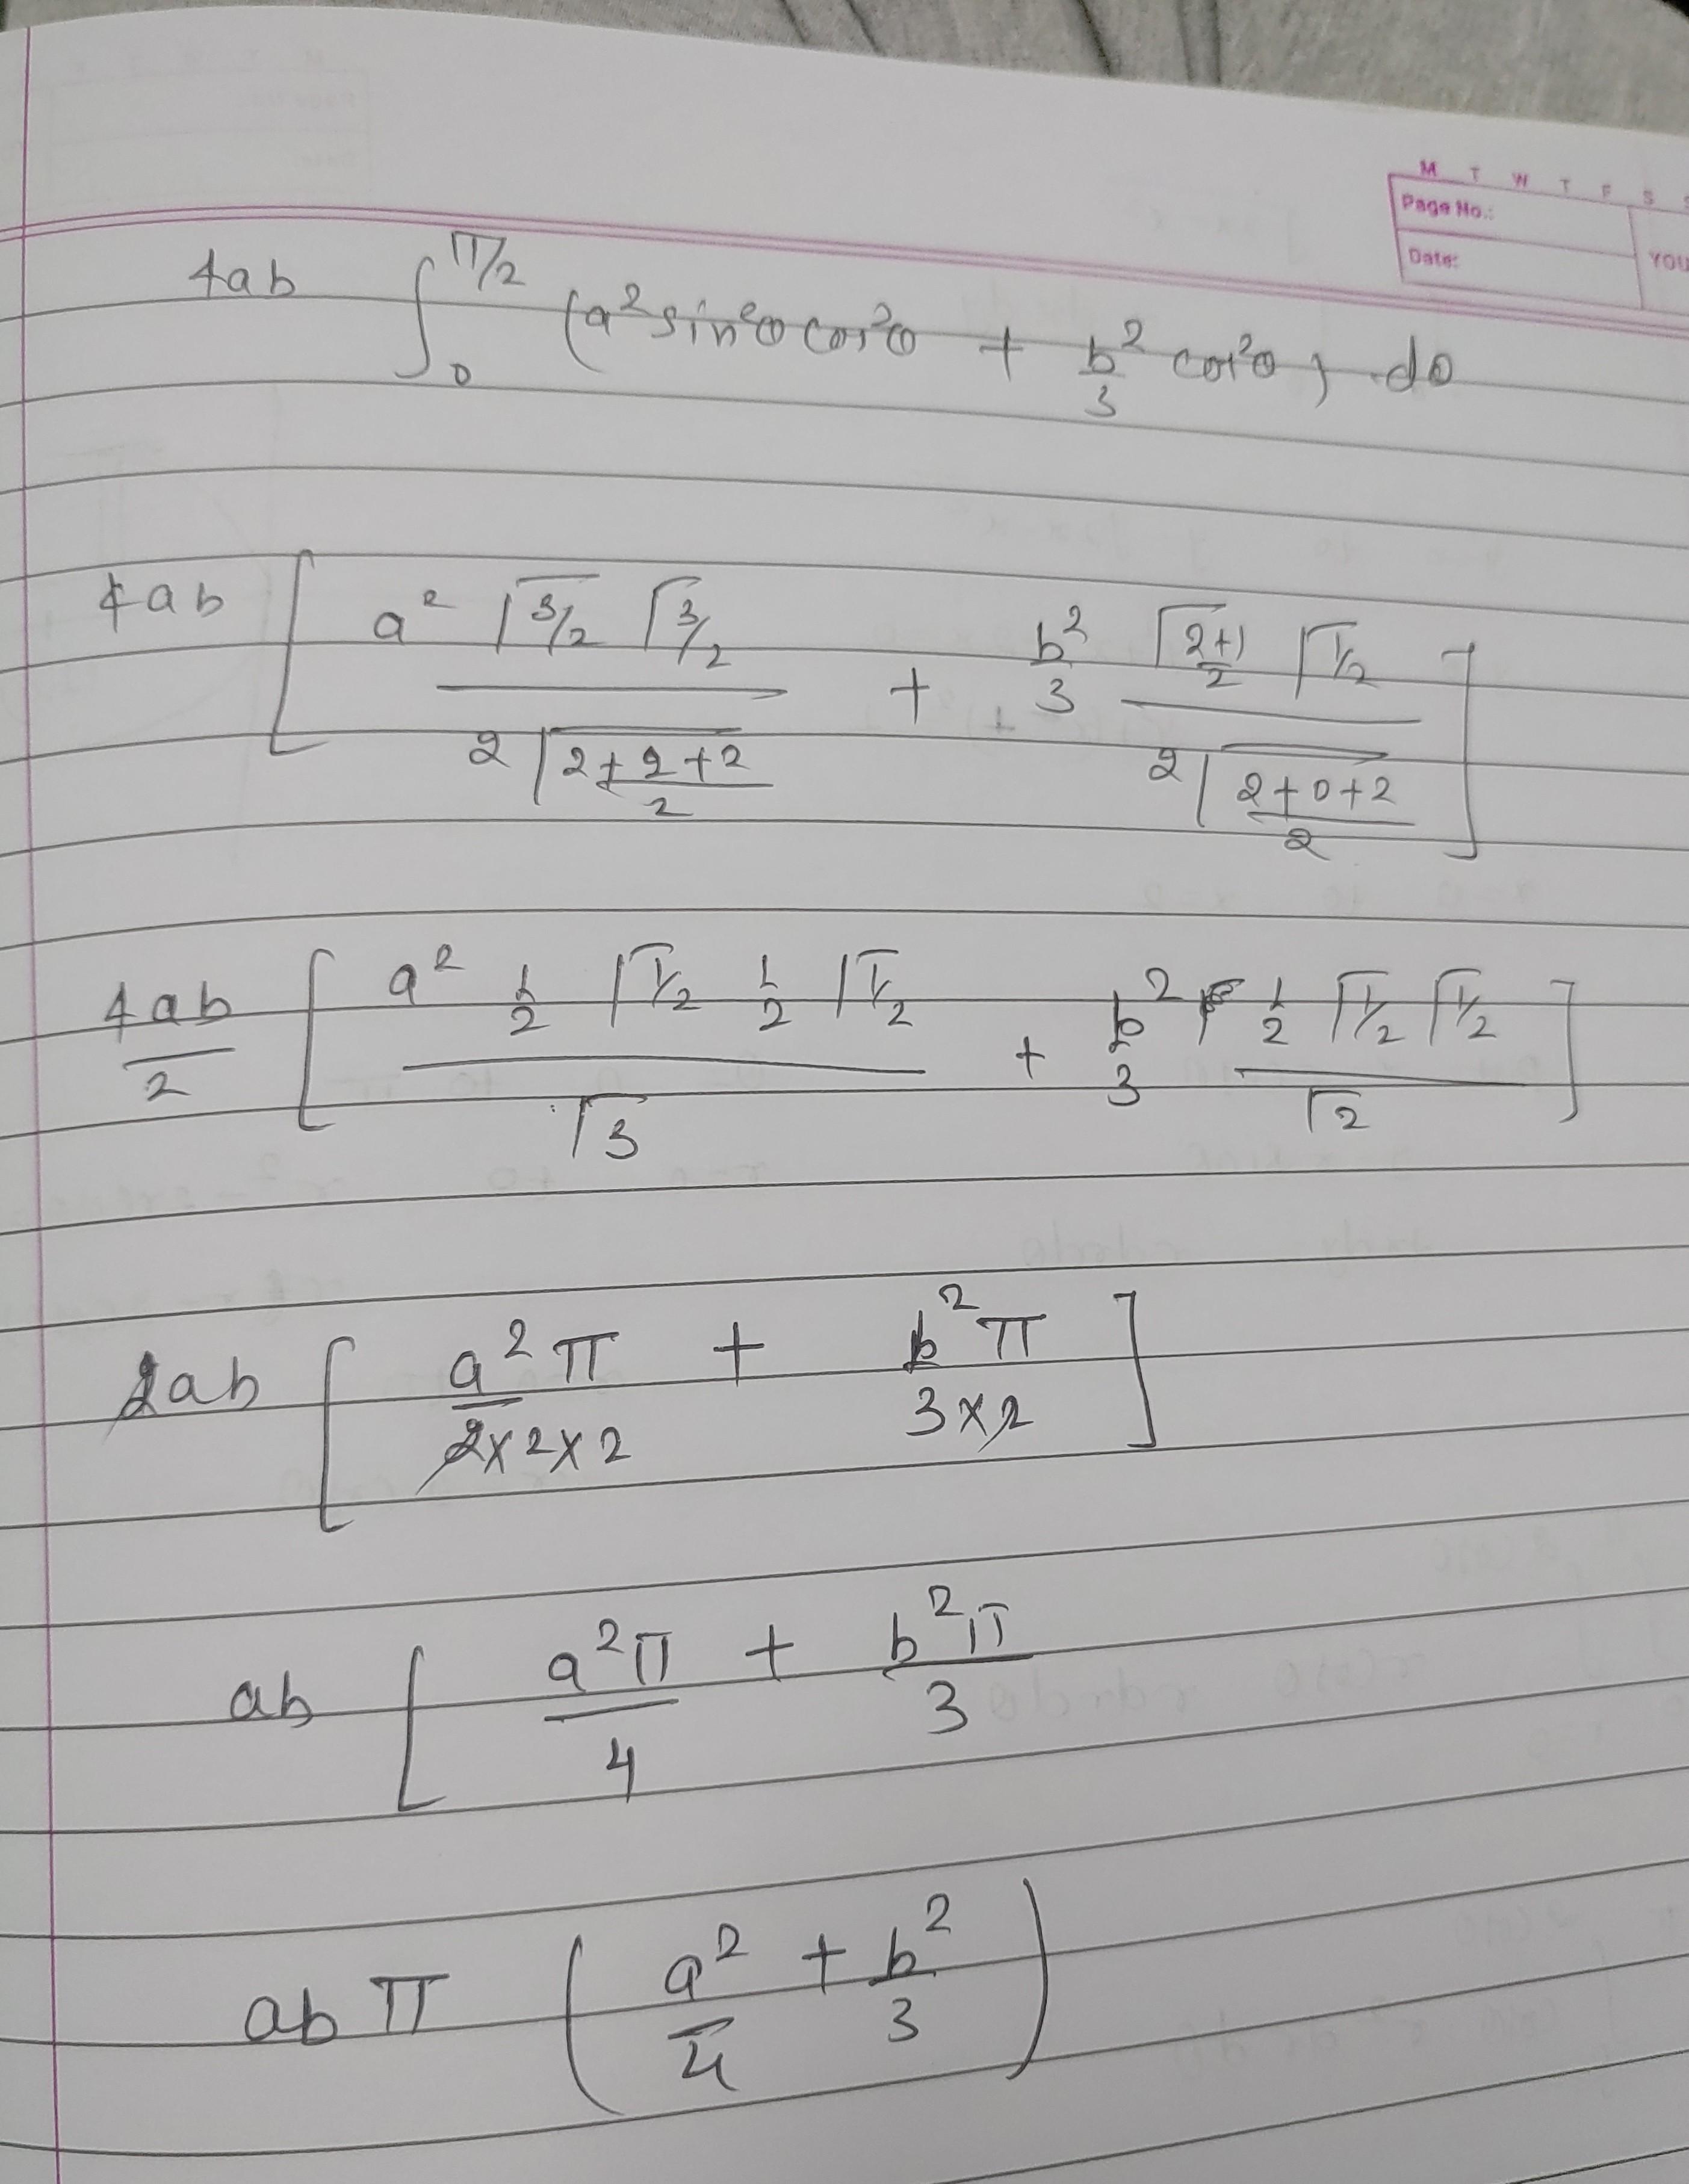 M T W T F S S
Page No.:
Date:
YOU
4ab ∫₀^{π/2} (a² sin²θ cos²θ + b²/3 cos²θ) . dθ
4ab [ a² Γ3/2 Γ3/2 / 2 Γ(2+2+2)/2 + b²/3 Γ(2+1)/2 Γ1/2 / 2 Γ(2+0+2)/2 ]
4ab/2 [ a² 1/2 Γ1/2 1/2 Γ1/2 / Γ3 + b²/3 1/2 Γ1/2 Γ1/2 / Γ2 ]
2ab [ a²π / 2×2×2 + b²π / 3×2 ]
ab [ a²π/4 + b²π/3
ab π ( a²/4 + b²/3 )